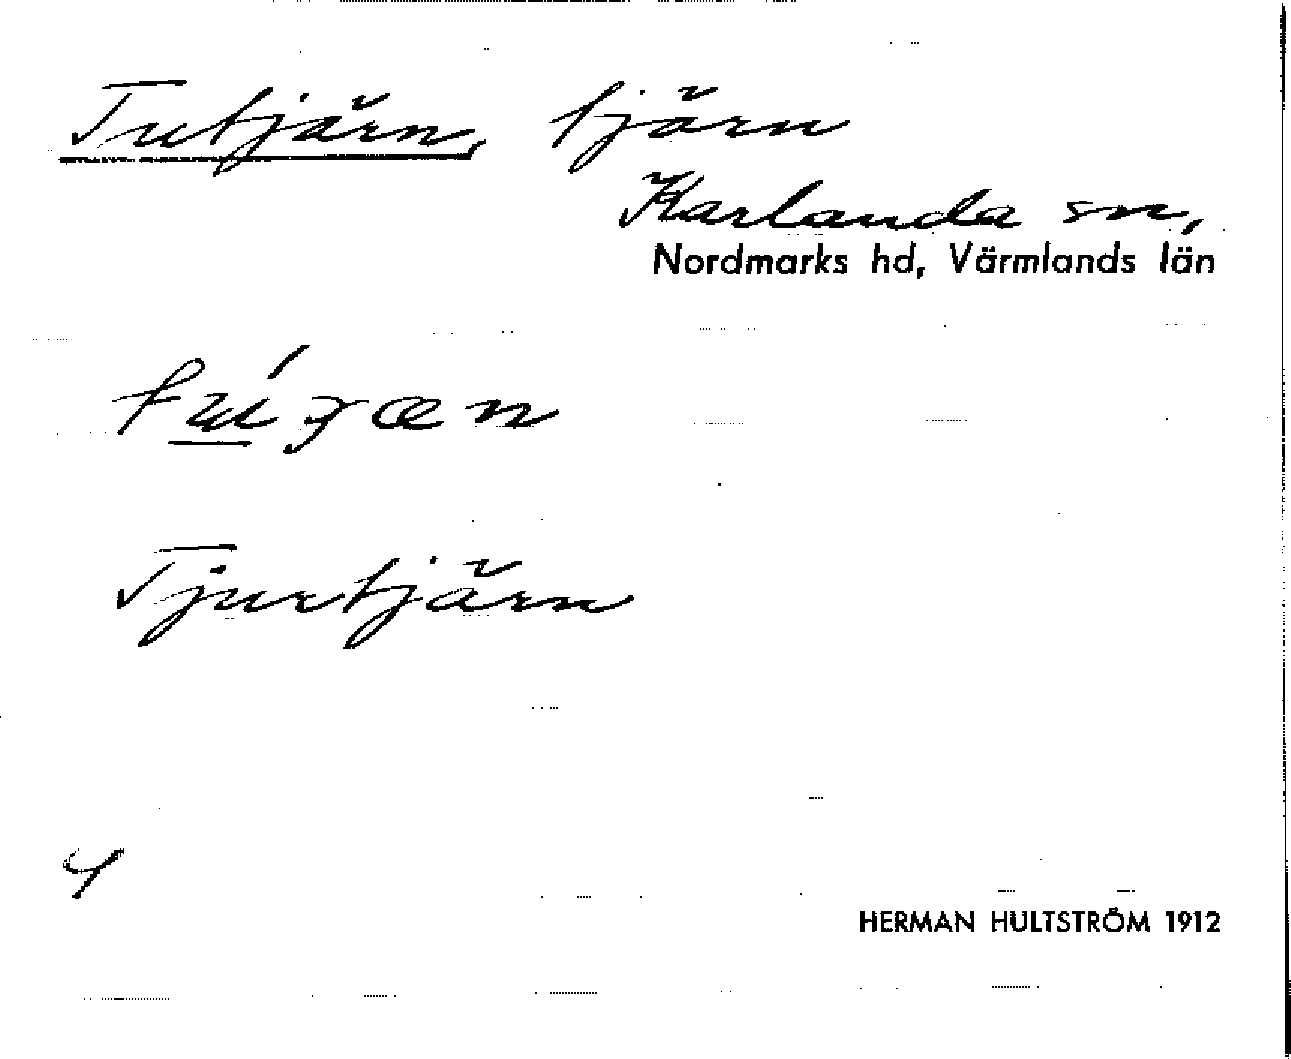 Tutjärn, tjärn
Karlanda sn,
Nordmarks hd, Värmlands län
Tjurtjärn
4
HERMAN HULTSTRÖM 1912